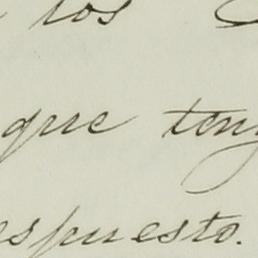 los
que ten
espuesto.